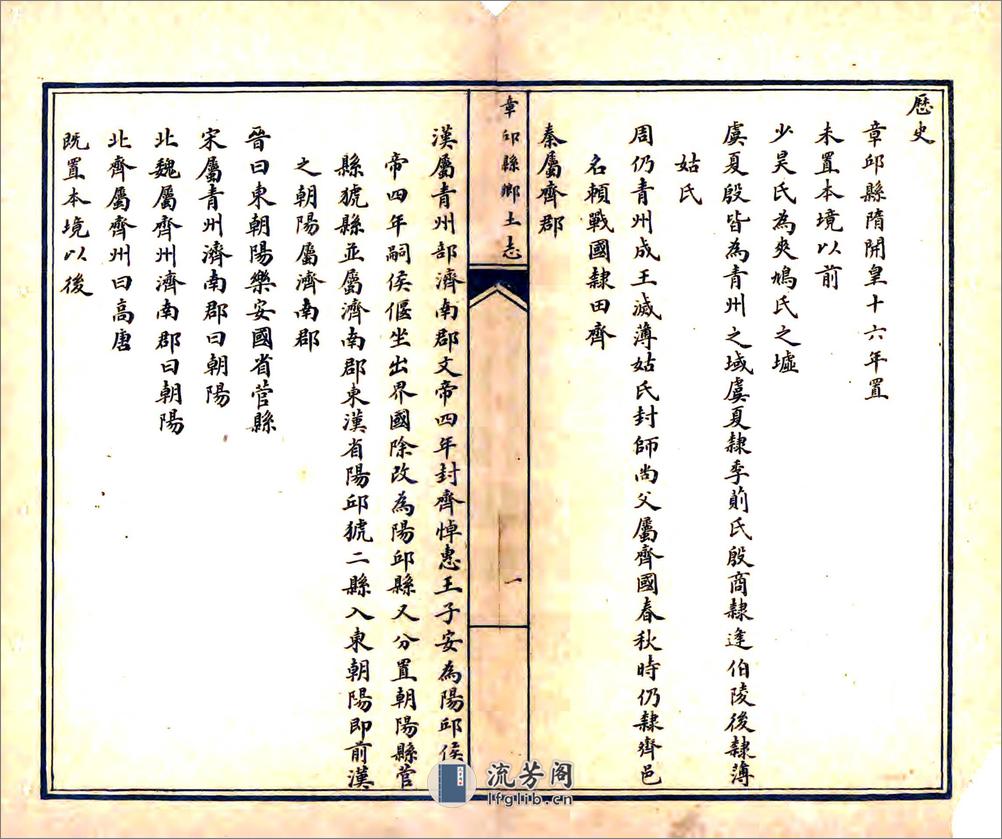 歷史
章邱縣隋開皇十六年置
未置本境以前
少昊氏為爽鳩氏之墟
虞夏殷皆為青州之域虞夏隸季萴氏殷商隸逢伯陵後隸薄
姑氏
周仍青州成王滅薄姑氏封師尚父屬齊國春秋時仍隸齊邑
名賴戰國隸田齊
秦屬齊郡
章邱縣鄉土志
一
漢屬青州部濟南郡文帝四年封齊悼惠王子安為陽邱侯
帝四年嗣侯偃坐出界國除改為陽邱縣又分置朝陽縣菅
縣猇縣並屬濟南郡東漢省陽邱猇二縣入東朝陽即前漢
之朝陽屬濟南郡
晉曰東朝陽樂安國省菅縣
宋屬青州濟南郡曰朝陽
北魏屬齊州濟南郡曰朝陽
北齊屬齊州曰高唐
既置本境以後
流芳阁
lfglib.cn